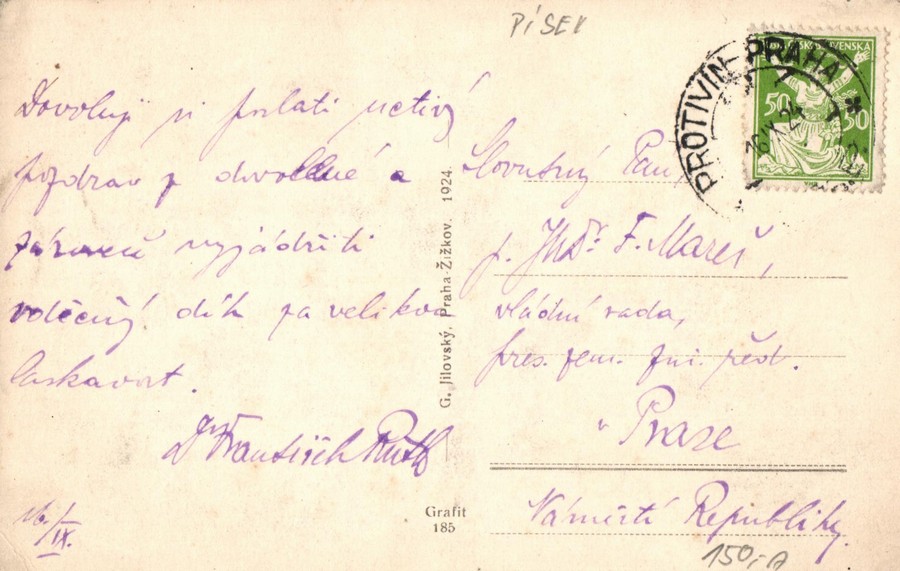 PÍSEK
Dovoluji si poslati uctivý
pozdrav z dovolené a
zároveň vyjádřiti
vděčný dík za velikou
laskavost.
Dr František Ruth
16/IX.
G. Jilovský, Praha-Žižkov. 1924.
Grafit
185
PROTIVÍN-PRAHA
16 IX 24
ČESKOSLOVENSKA
50 50
Slovutný Pan
p. JUDr F. Mareš,
vládní rada,
pres. zem. fin. řed.
v Praze
Náměstí Republiky.
150,-